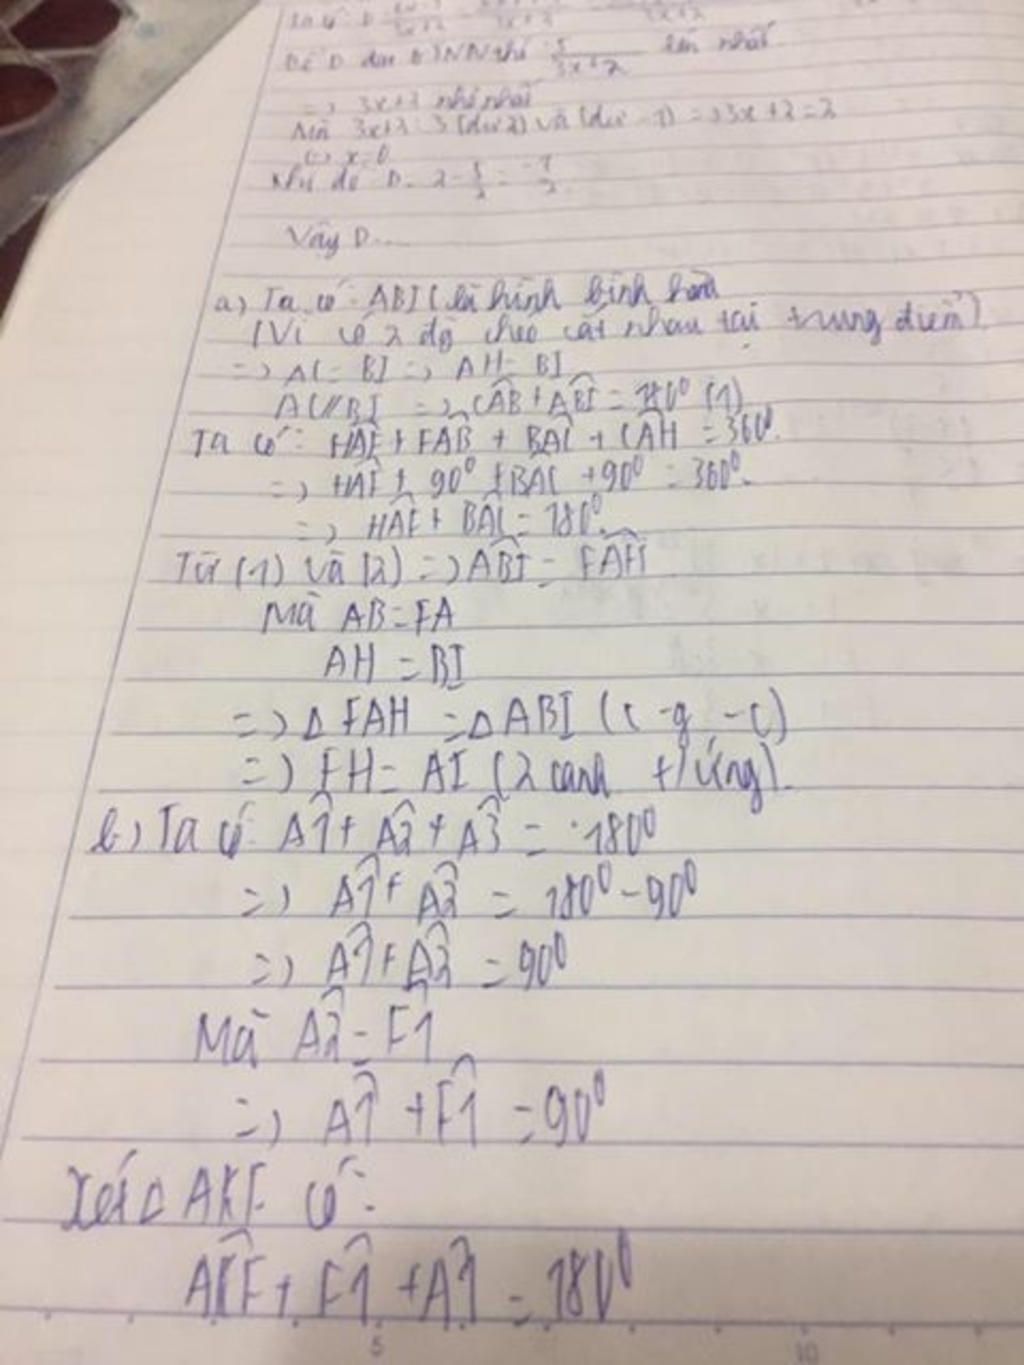 Để D đạt GTNN thì 5/3x+2 lớn nhất
=> 3x+2 nhỏ nhất
Mà 3x+2 : 3 (dư 2) và (dư -1) => 3x+2=2
<=> x=0
Khi đó D=2-5/2=-1/2
Vậy D....
a) Ta có: ABIC là hình bình hành
(Vì có 2 đg chéo cắt nhau tại trung điểm)
=> AC = BI => AH = BI
AC//BI => CAB + ABI = 180⁰ (1)
Ta có: HAF + FAB + BAC + CAH = 360⁰.
=> HAF + 90⁰ + BAC + 90⁰ = 360⁰.
=> HAF + BAC = 180⁰.
Từ (1) và (2) => ABI = FAH
Mà AB = FA
AH = BI
=> Δ FAH = Δ ABI (c-g-c)
=> FH = AI (2 cạnh t/ứng).
b) Ta có: A1 + A2 + A3 = 180⁰
=> A1 + A2 = 180⁰ - 90⁰
=> A1 + A2 = 90⁰
Mà A2 = F1
=> A1 + F1 = 90⁰
Xét Δ AKF có:
AKF + F1 + A1 = 180⁰
5 10